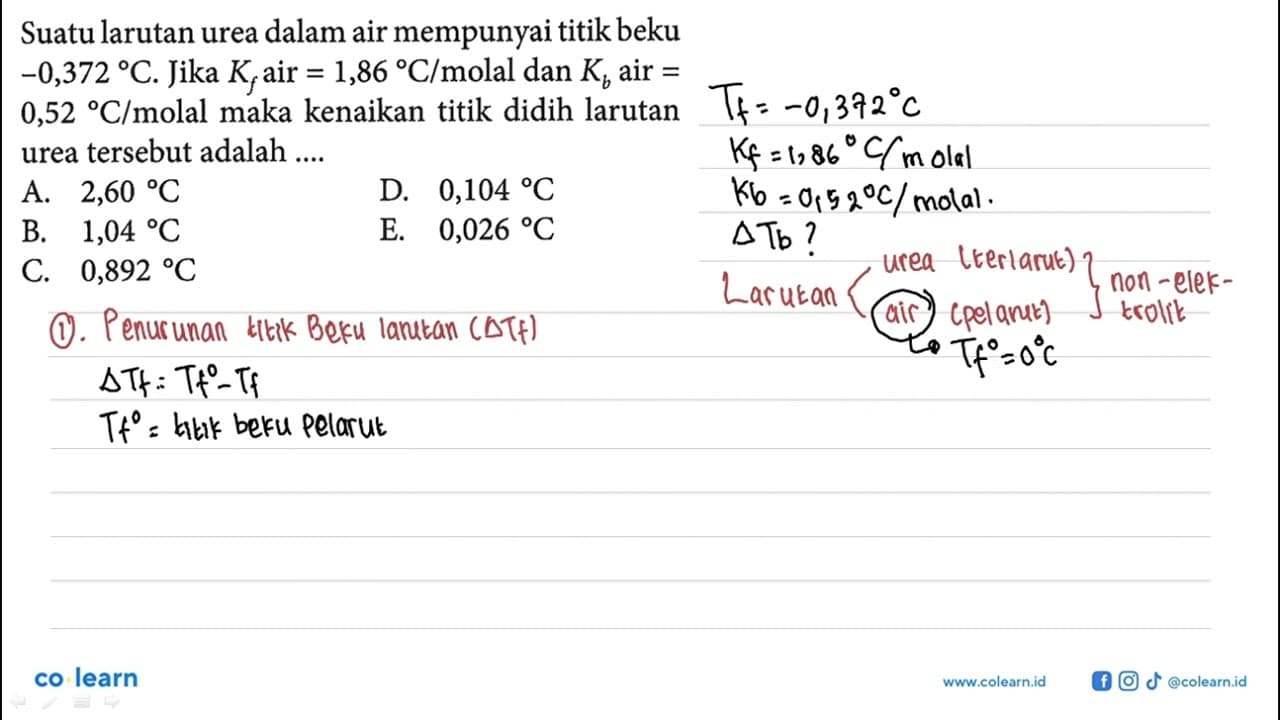 Suatu larutan urea dalam air mempunyai titik beku
–0,372 °C. Jika K_f air = 1,86 °C/molal dan K_b air =
0,52 °C/molal maka kenaikan titik didih larutan
urea tersebut adalah ....
A. 2,60 °C D. 0,104 °C
B. 1,04 °C E. 0,026 °C
C. 0,892 °C
Tf = -0,372°C
Kf = 1,86°C/molal
Kb = 0,52°C/molal.
ΔTb?
Larutan
urea (terlarut)
air (pelarut)
non-elek-
trolit
Tf° = 0°C
①. Penurunan titik Beku larutan (ΔTf)
ΔTf = Tf° - Tf
Tf° = titik beku pelarut
co learn
www.colearn.id
@colearn.id